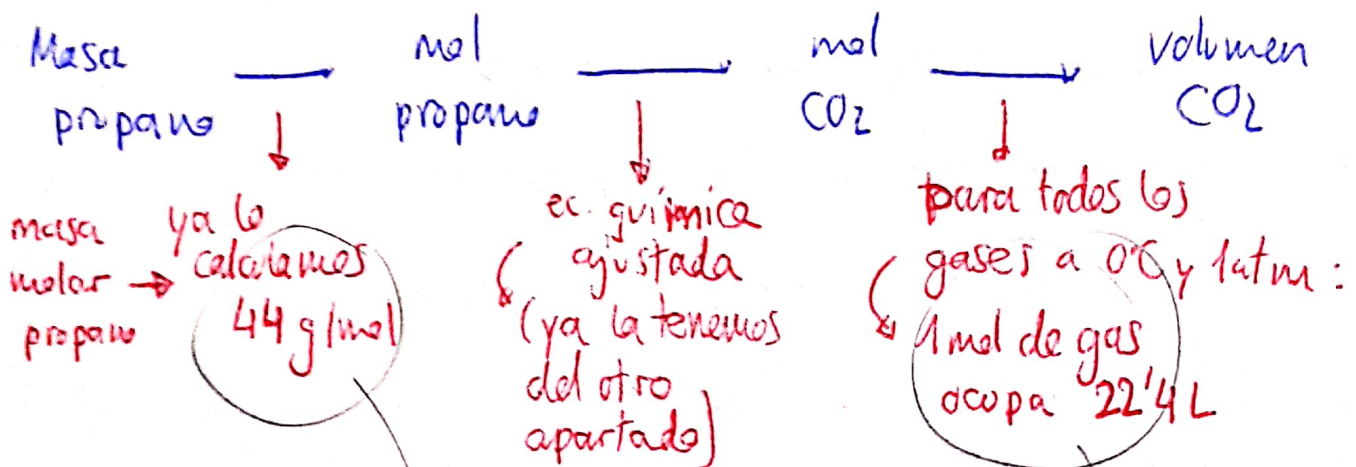 Masa propano → mol propano → mol CO2 → volumen CO2
masa molar propano →
ya lo
calculamos
44 g/mol
ec. química
ajustada
(ya la tenemos
del otro
apartado)
para todos los
gases a 0ºC y 1atm:
1 mol de gas
ocupa 22'4 L